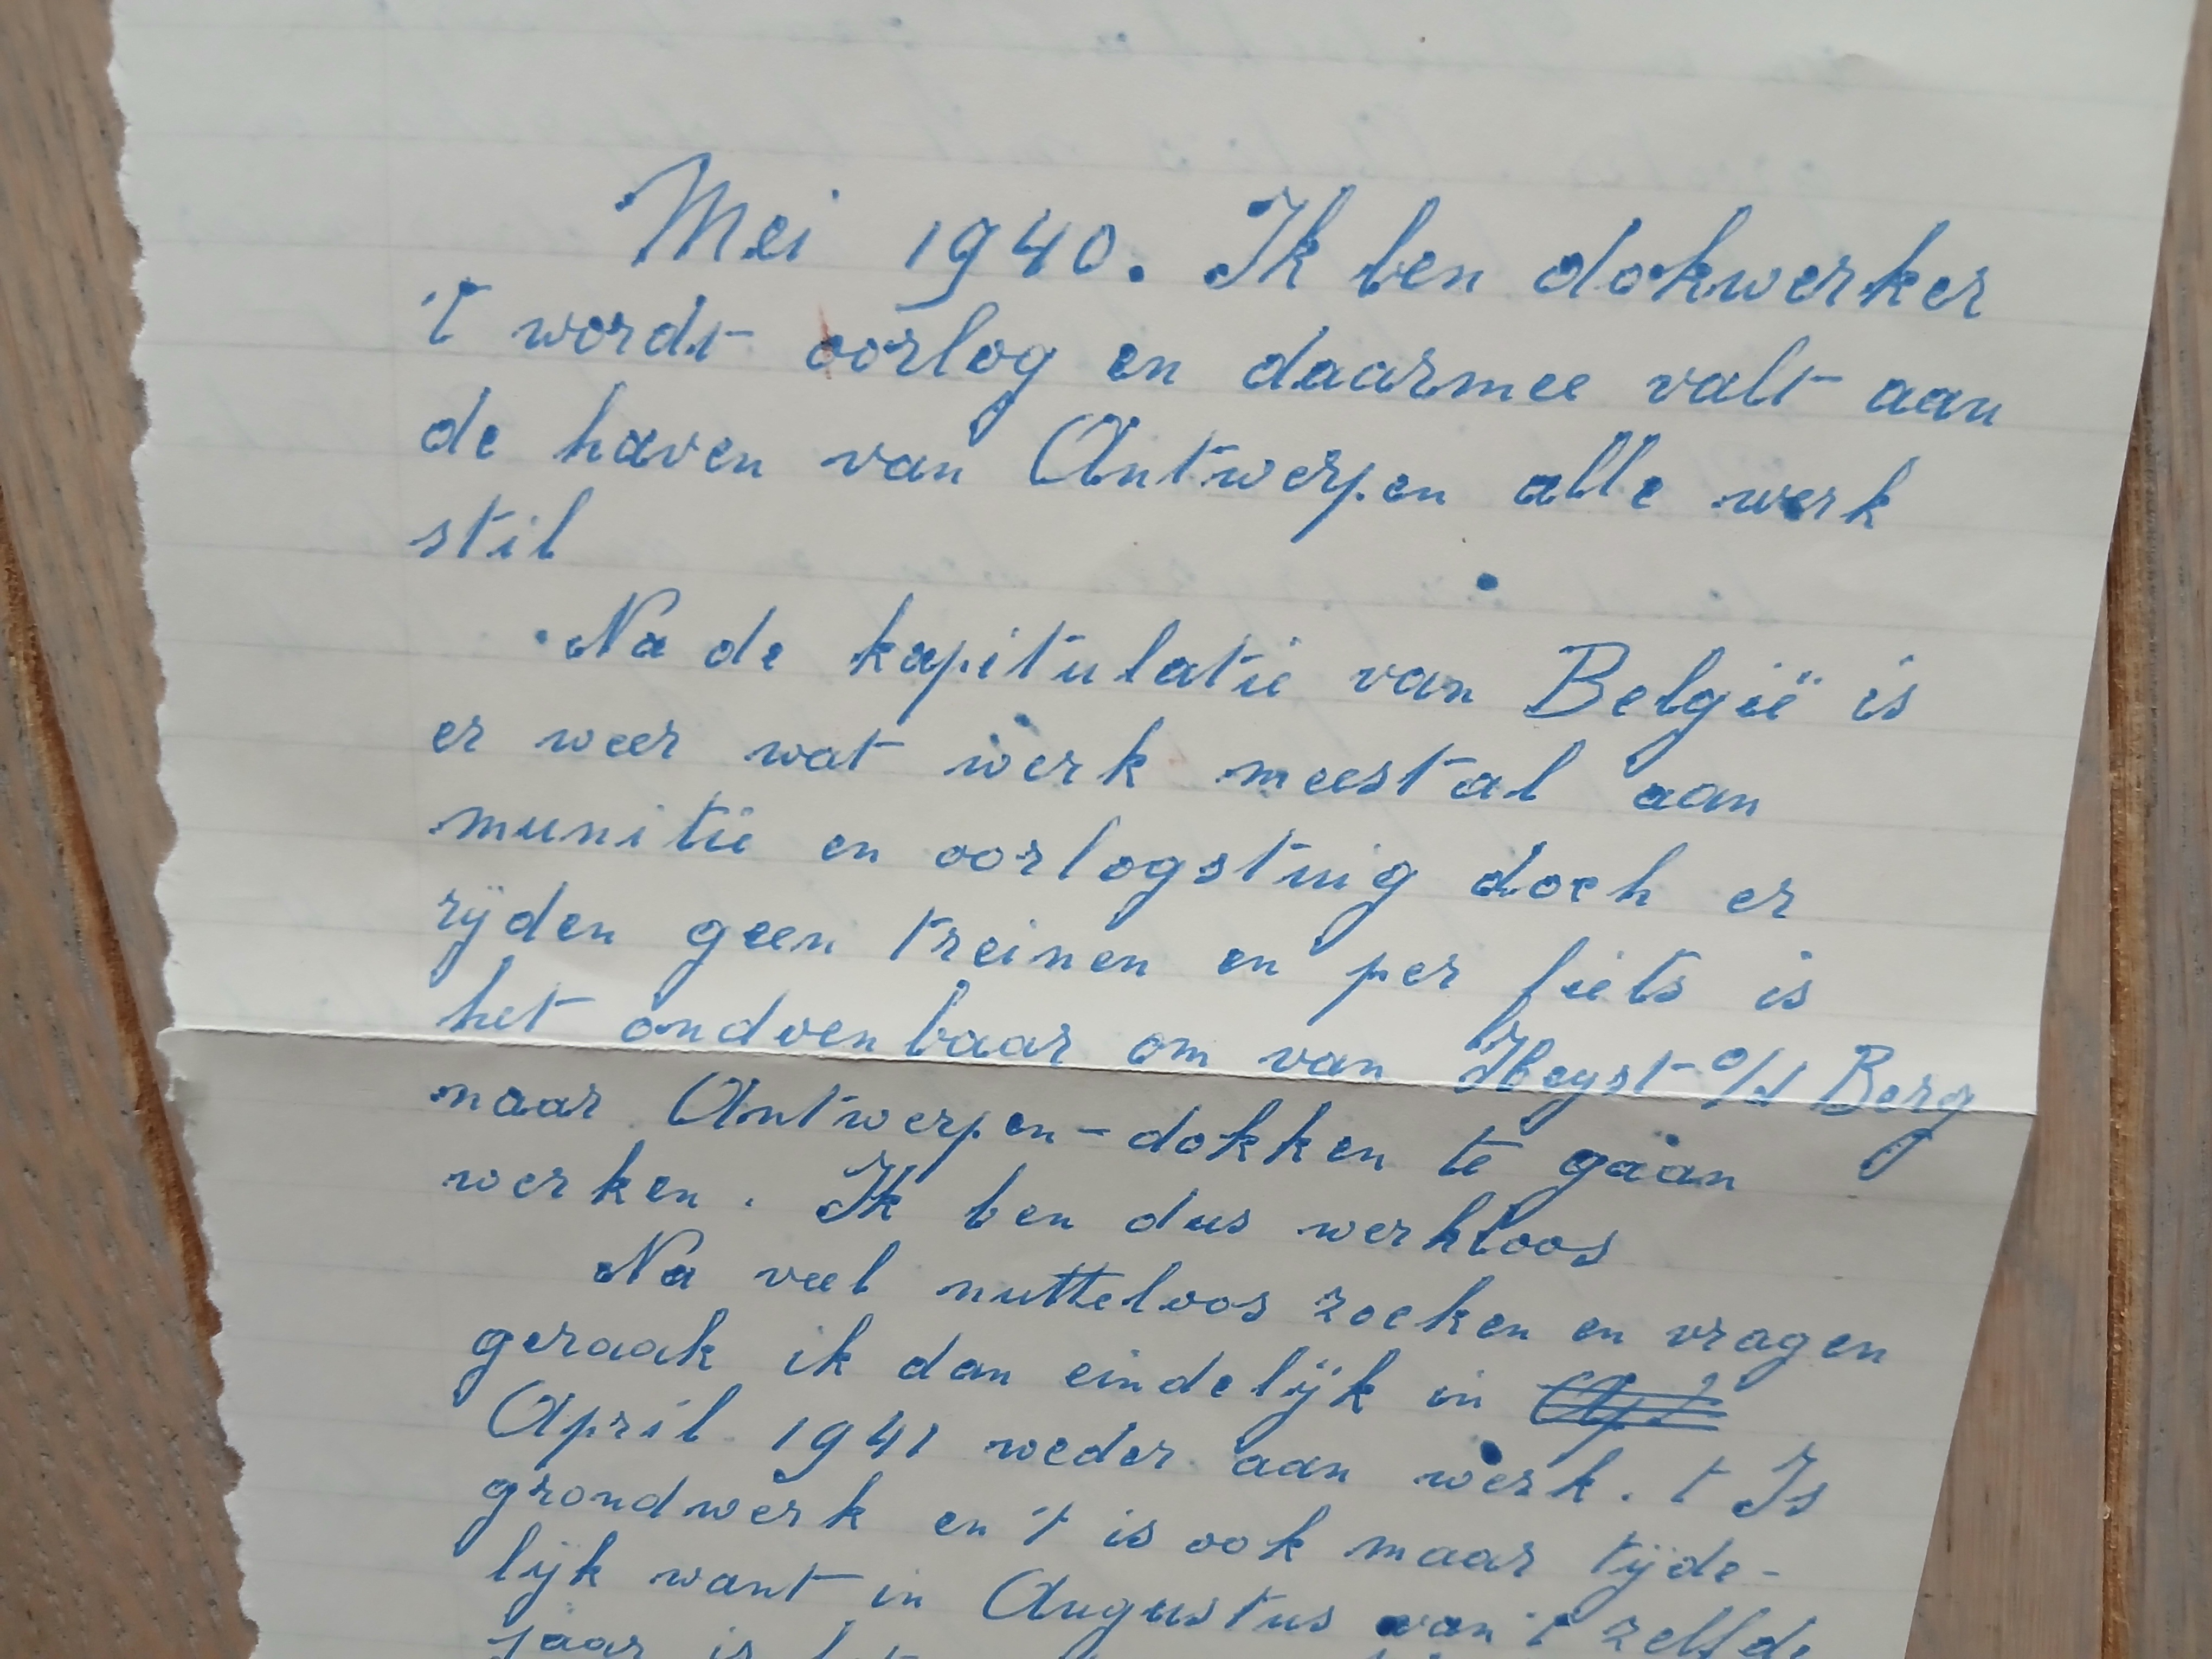 Mei 1940. Ik ben dokwerker
't wordt oorlog en daarmee valt aan
de haven van Antwerpen alle werk
stil
Na de kapitulatie van België is
er weer wat werk meestal aan
munitie en oorlogstuig doch er
rijden geen treinen en per fiets is
het ondoenbaar om van Heyst o/d Berg
naar Antwerpen-dokken te gaan
werken. Ik ben dus werkloos
Na veel nutteloos zoeken en vragen
geraak ik dan eindelijk in
April 1941 weder aan werk. t Is
grondwerk en 't is ook maar tijde-
lijk want in Augustus van 't zelfde
jaar is